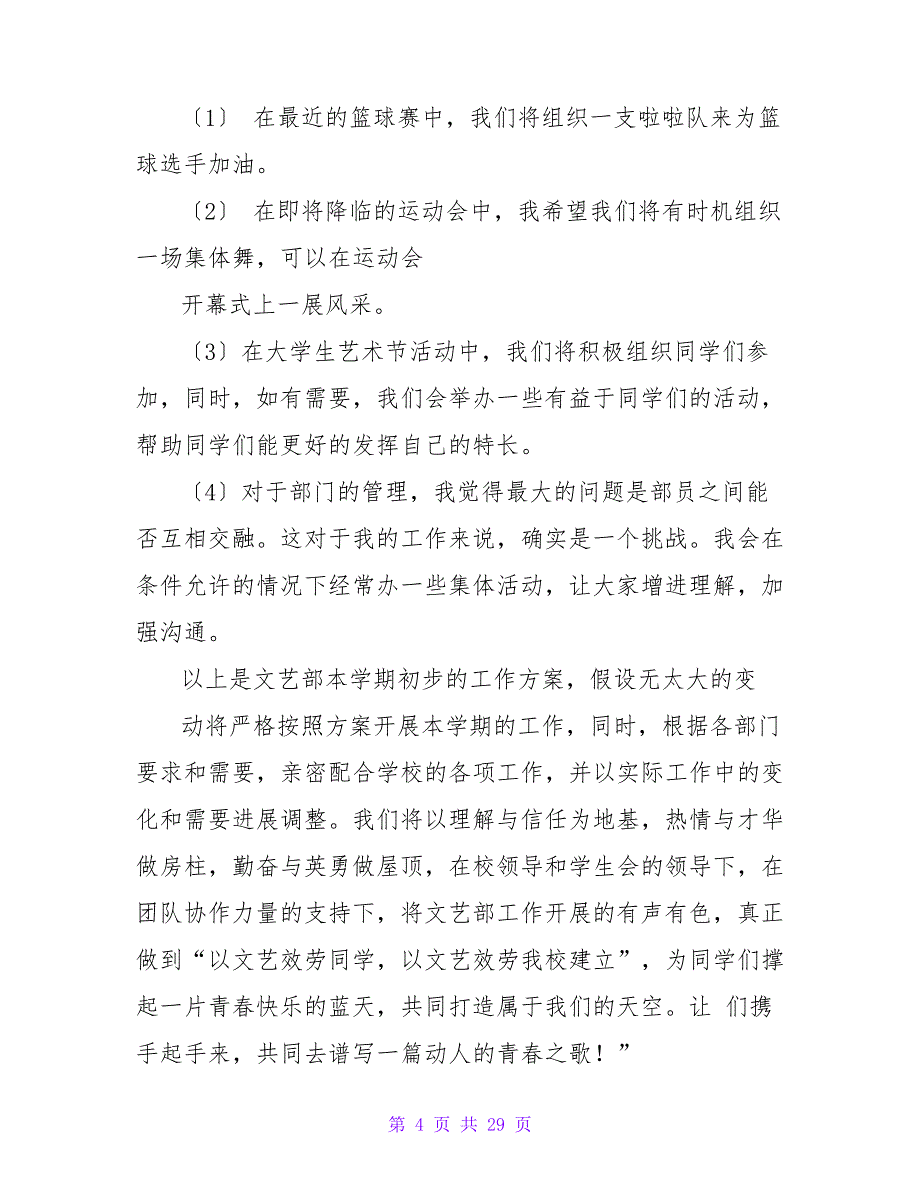 〔1〕 在最近的篮球赛中，我们将组织一支啦啦队来为篮
球选手加油。
〔2〕 在即将降临的运动会中，我希望我们将有时机组织
一场集体舞，可以在运动会
开幕式上一展风采。
〔3〕在大学生艺术节活动中，我们将积极组织同学们参
加，同时，如有需要，我们会举办一些有益于同学们的活动，
帮助同学们能更好的发挥自己的特长。
〔4〕对于部门的管理，我觉得最大的问题是部员之间能
否互相交融。这对于我的工作来说，确实是一个挑战。我会在
条件允许的情况下经常办一些集体活动，让大家增进理解，加
强沟通。
以上是文艺部本学期初步的工作方案，假设无太大的变
动将严格按照方案开展本学期的工作，同时，根据各部门
要求和需要，亲密配合学校的各项工作，并以实际工作中的变
化和需要进展调整。我们将以理解与信任为地基，热情与才华
做房柱，勤奋与英勇做屋顶，在校领导和学生会的领导下，在
团队协作力量的支持下，将文艺部工作开展的有声有色，真正
做到“以文艺效劳同学，以文艺效劳我校建立”，为同学们撑
起一片青春快乐的蓝天，共同打造属于我们的天空。让 们携
手起手来，共同去谱写一篇动人的青春之歌！”
第 4 页 共 29 页